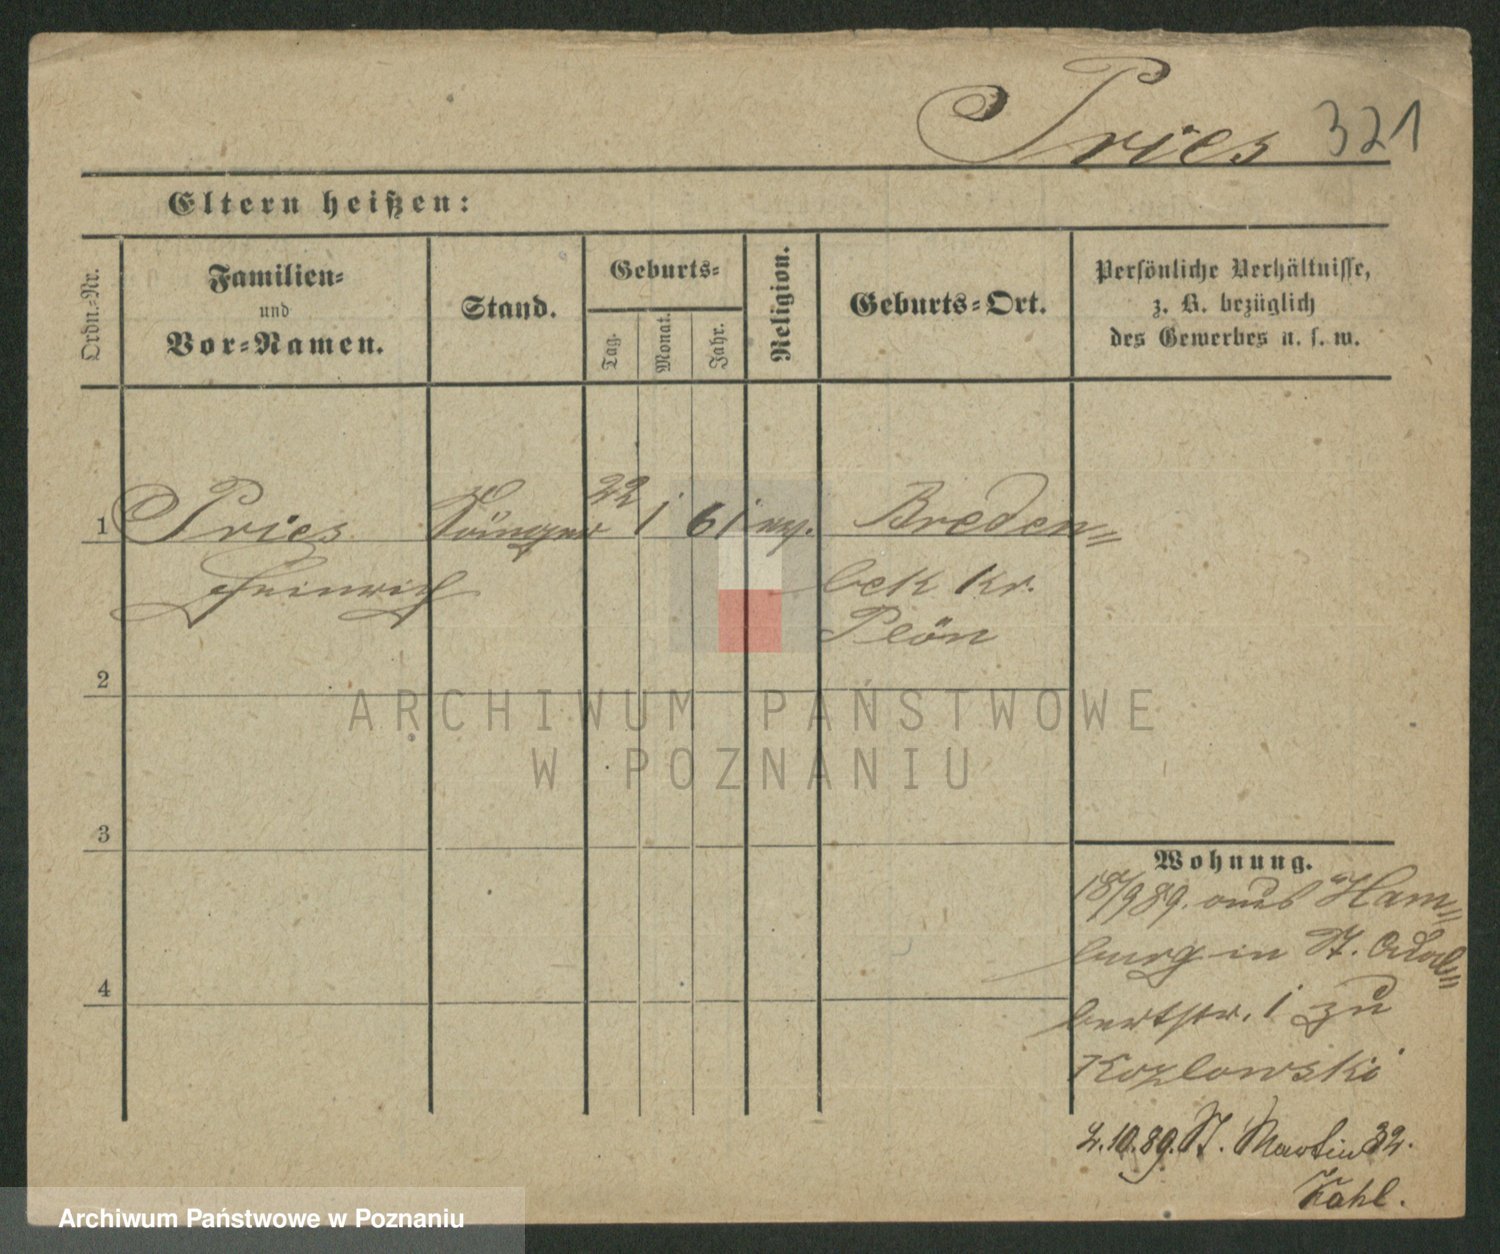 Pries 321
Eltern heißen:
Ordn.-Nr.
Familien-
und
Vor-Namen.
Stand.
Geburts-
Tag.
Monat.
Jahr.
Religion.
Geburts-Ort.
Persönliche Verhältnisse,
z. B. bezüglich
des Gewerbes u. s. w.
1 Pries Sänger 22 1 61 ev. Breden=
Heinrich bek Kr.
Plön
2
3
4
Wohnung.
18/9 89. aus Ham=
burg in St. Adal=
bertstr. 1 zu
Kozlowski
2.10.89. St. Martin 32.
Kahl.
ARCHIWUM PAŃSTWOWE
W POZNANIU
Archiwum Państwowe w Poznaniu